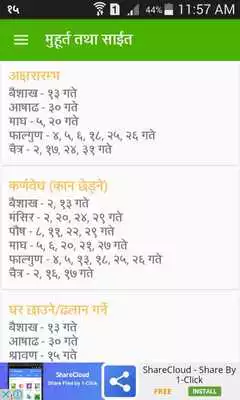 १५ 1 44% 11:57 AM
मुहूर्त तथा साईत
अक्षरारम्भ
बैशाख - १३ गते
आषाढ - ३० गते
माघ - ५, २० गते
फाल्गुण - ४, ५, ६, १८, २५, २६ गते
चैत्र - २, १७, २४, ३१ गते
कर्णवेध (कान छेड्ने)
बैशाख - २, १३ गते
मंसिर - २, २०, २४, २९ गते
पौष - ८, ११, २२, २९ गते
माघ - ५, ६, २०, २१, २७ गते
फाल्गुण - ४, ५, १३, १८, २५, २६ गते
चैत्र - २, १६, १७ गते
घर छाउने/ढलान गर्ने
बैशाख - १३ गते
आषाढ - ३० गते
श्रावण - १५ गते
ShareCloud
Share Files by 1-Click
ShareCloud - Share By
1-Click
FREE INSTALL